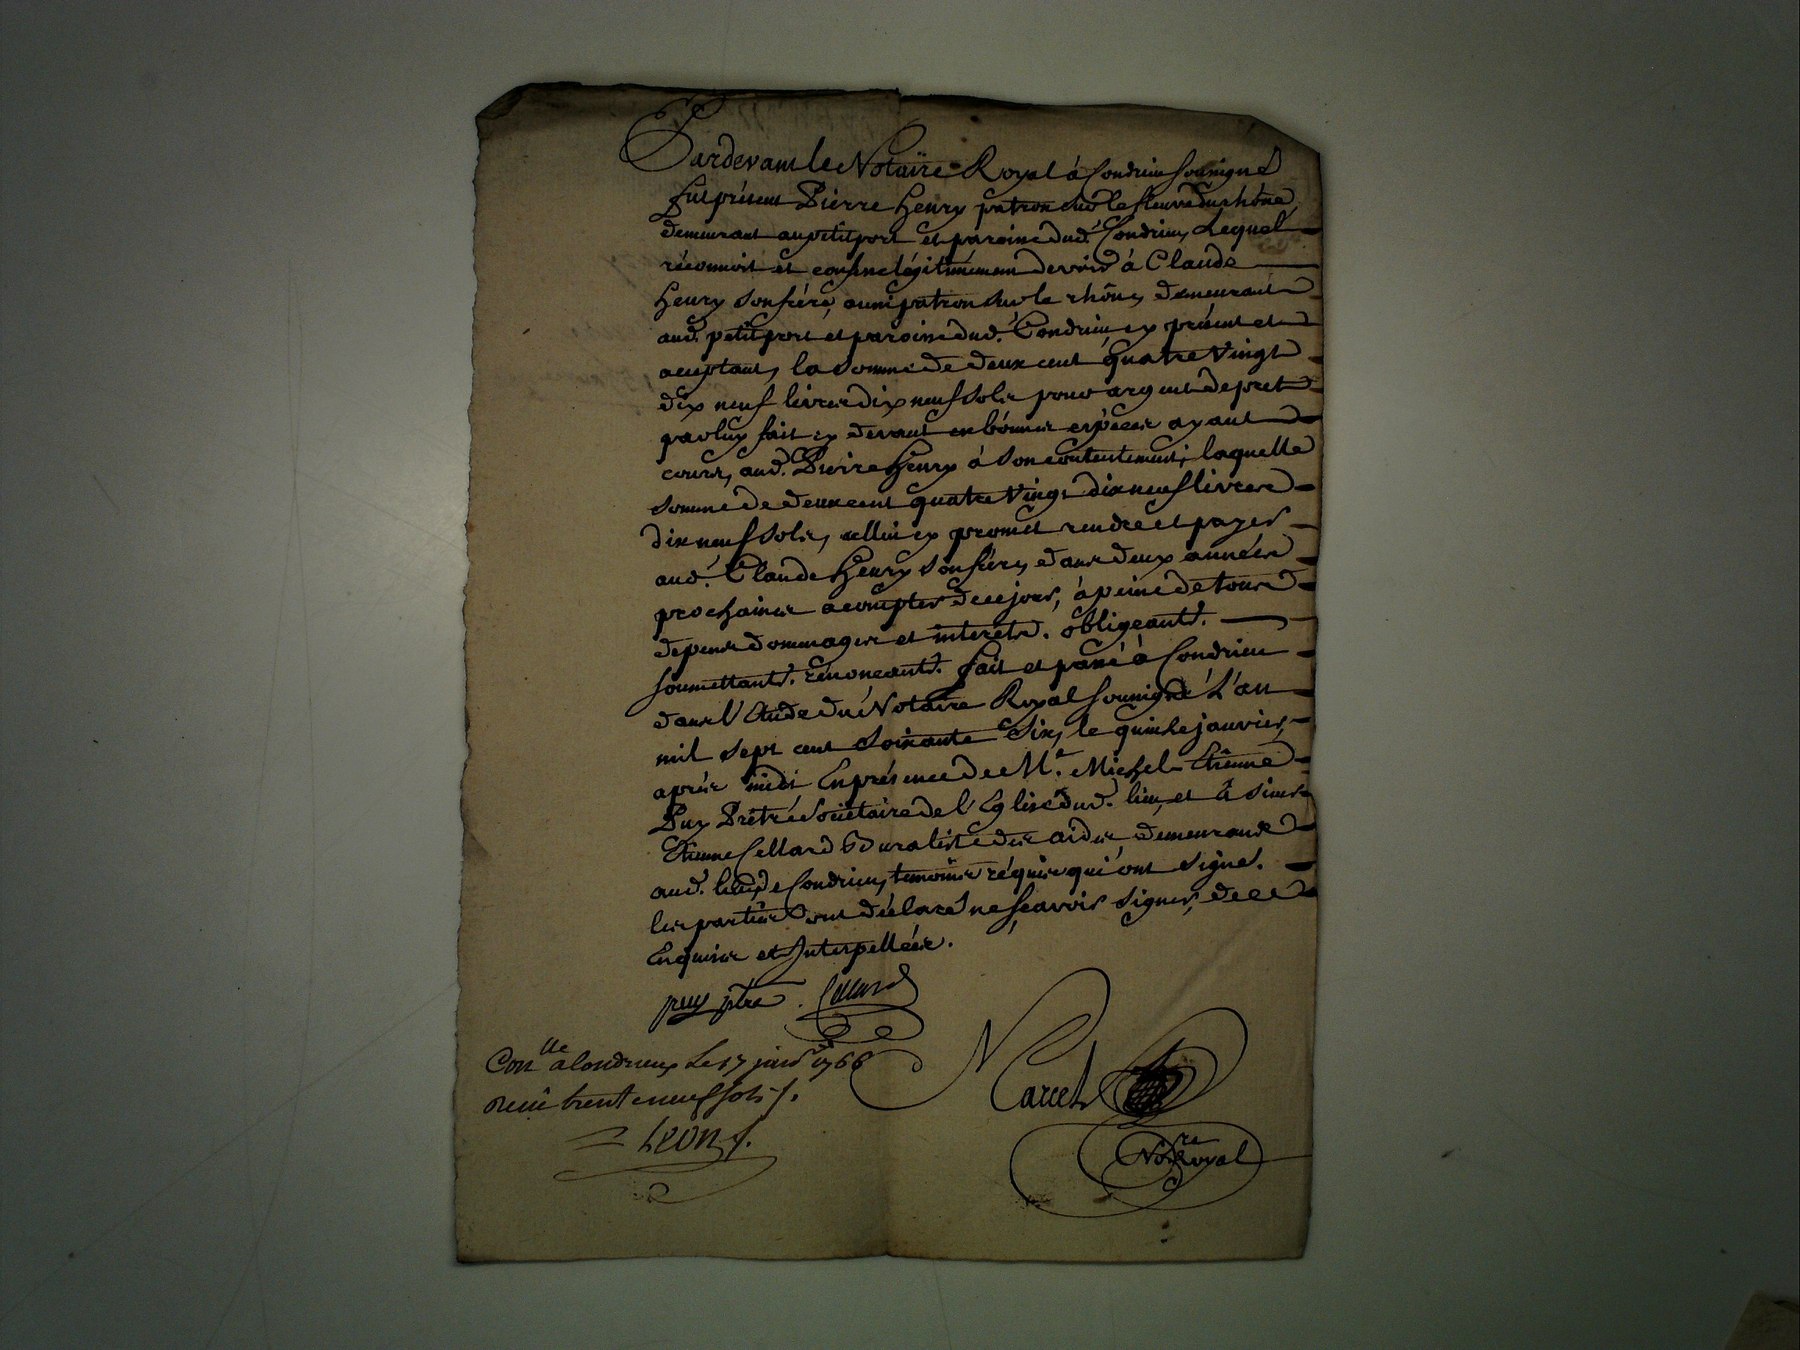 Pardevant le Notaire Royal à Condrieu soussigné
fut présent Pierre Henry patron sur le fleuve du rhône,
demeurant au petit port et paroisse dud. Condrieu, Lequel
réconnoit et confesse légitimement devoir à Claude
Henry son frére, aussi patron sur le rhône, demeurant
aud. petit port et paroisse dud. Condrieu, cy présent et
acceptant, la somme de deux cent quatre vingt
dix neuf livres dix neuf sols pour argent de pret
par luy fait cy devant en bonnes espéces ayant
cours, aud. Pierre Henry à son contentement; laquelle
somme de deux cent quatre vingt dix neuf livres
dix neuf sols, cellui cy promet rendre et payer
aud. Claude Henry son frére, dans deux années
prochaines a compter de ce jour, à peine de tous
depens dommages et interets. obligeant.
soumettant. rénonceant. fait et passé à Condrieu
dans l'Etude du Notaire Royal soussigné L'an
mil sept cent soixante six, le quinze janvier,
aprés midi En présence de Me. Michel Etienne
Puy Prêtre Sociétaire de l'Eglise dud. lieu, et de Sieur
Etienne Cellard Buraliste des aides demeurant
aud. lieu de Condrieu, temoins réquis qui ont signé.
les parties ont déclaré ne sçavoir signer, de ce
Enquises et Interpellées.
puy ptre. Cellard
Conlle a Condrieux Le 17 janv 1766
Receu trente neuf sols
Marcet
Leon
Nore Royal